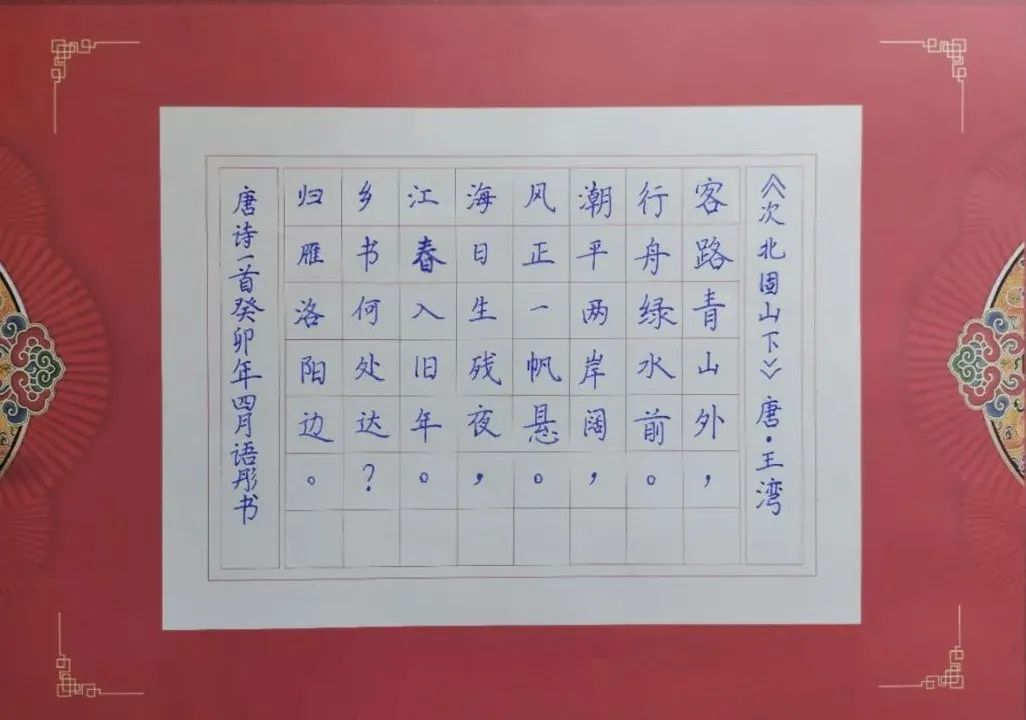 《次北固山下》唐·王湾
客路青山外，
行舟绿水前。
潮平两岸阔，
风正一帆悬。
海日生残夜，
江春入旧年。
乡书何处达？
归雁洛阳边。
唐诗一首癸卯年四月语彤书